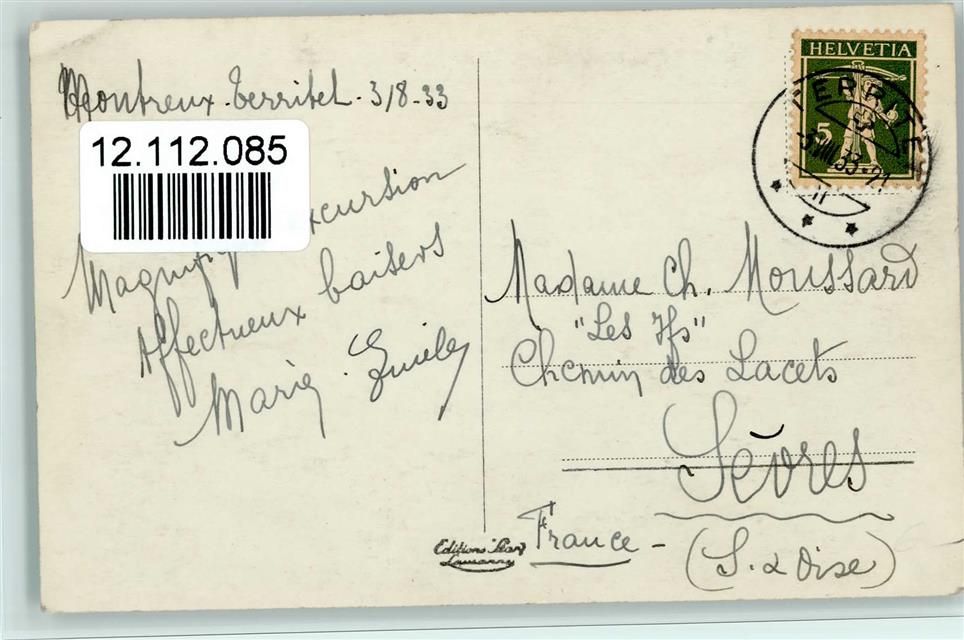 Montreux-Territet - 3/8-33
12.112.085
excursion
Affectueux baisers
Marie
HELVETIA
5
TERRITET
Madame Ch. Moussard
"Les Ifs"
Chemin des Lacets
Sèvres
France -
(S. & Oise)
Editions
Lausanne